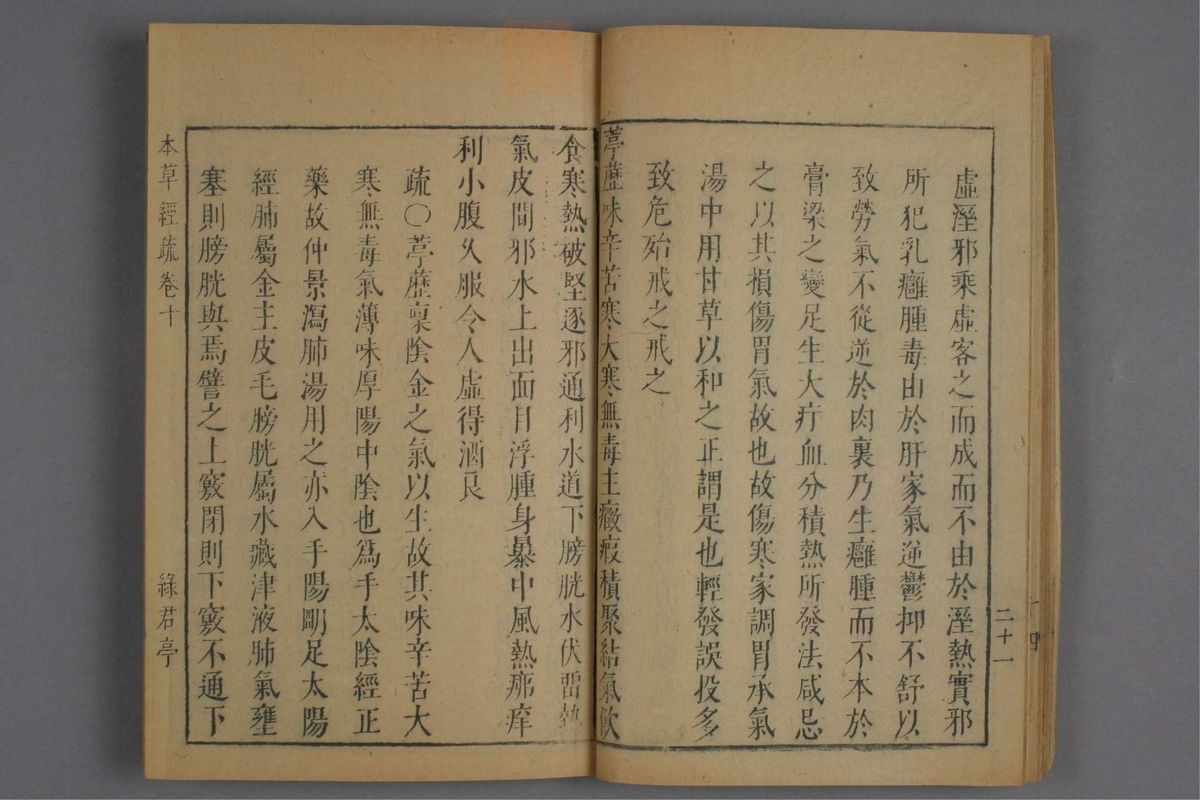 虛溼邪乘虛客之而成而不由於溼熱實邪
所犯乳癰腫毒由於肝家氣逆鬱抑不舒以
致勞氣不從逆於肉裏乃生癰腫而不本於
膏梁之變足生大疔血分積熱所發法咸忌
之以其損傷胃氣故也故傷寒家調胃承氣
湯中用甘草以和之正謂是也輕發誤投多
致危殆戒之戒之
葶藶味辛苦寒大寒無毒主癥瘕積聚結氣飲
食寒熱破堅逐邪通利水道下膀胱水伏畱熱
氣皮間邪水上出面目浮腫身暴中風熱疿痒
利小腹久服令人虛得酒良
疏〇葶藶稟陰金之氣以生故其味辛苦大
寒無毒氣薄味厚陽中陰也爲手太陰經正
藥故仲景瀉肺湯用之亦入手陽明足太陽
經肺屬金主皮毛膀胱屬水藏津液肺氣壅
塞則膀胱與焉譬之上竅閉則下竅不通下
本草經疏 卷十
綠君亭
二十一